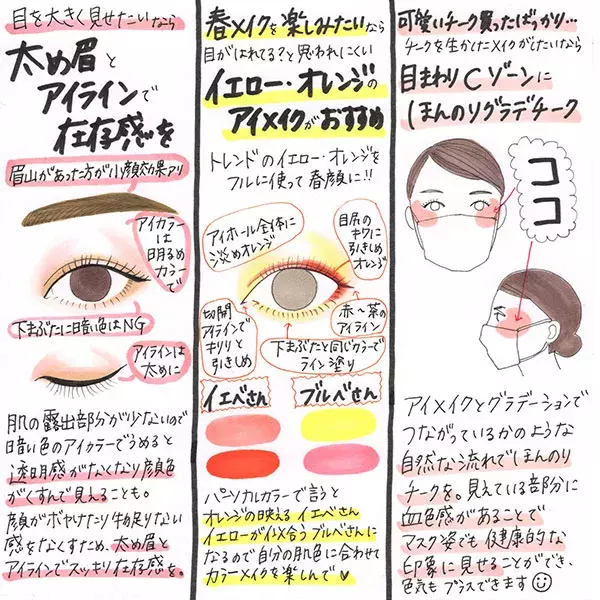 目を大きく見せたいなら
太め眉と
アイラインで
存在感を
眉山があった方が小顔効果アリ
アイカラー
は
明るめ
カラー
で
下まぶたに暗い色はNG
アイラインは
太めに
肌の露出部分が少ないので
暗い色のアイカラーでうめると
透明感がなくなり顔色
がくすんで見えることも。
顔がボヤけたり物足りない
感をなくすため、太め眉と
アイラインでスッキリ存在感を。
春メイクを楽しみたいなら
目がはれてる?と思われにくい
イエロー・オレンジの
アイメイクがおすすめ
トレンドのイエロー・オレンジを
フルに使って春顔に!!
アイホール全体に
淡めオレンジ
目尻の
キワに
引きしめ
オレンジ
切開
アイラインで
キリリと
引きしめ
赤〜茶の
アイライン
下まぶたと同じカラーで
ライン塗り
イエベさん
ブルベさん
パーソナルカラーで言うと
オレンジの映える イエベさん
イエローが似合う ブルベさんに
なるので自分の肌色に合わせて
カラーメイクを楽しんで♥
可愛いチーク買ったばっかり…
チークを生かしたメイクがしたいなら
目まわりCゾーンに
ほんのりグラデチーク
ココ
アイメイクとグラデーションで
つながっているかのような
自然な流れでほんのり
チークを。見えている部分に
血色感があることで
マスク姿でも健康的な
印象に見せることができ、
色気もプラスできます☺